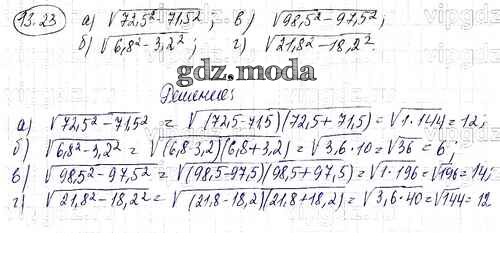 13.23 а) √72,5² - 71,5² ; в) √98,5² - 97,5² ;
б) √6,8² - 3,2² ; г) √21,8² - 18,2² .
gdz.moda
Решение:
а) √72,5² - 71,5² = √(72,5 - 71,5)(72,5 + 71,5) = √1·144 = 12;
б) √6,8² - 3,2² = √(6,8 - 3,2)(6,8 + 3,2) = √3,6·10 = √36 = 6;
в) √98,5² - 97,5² = √(98,5 - 97,5)(98,5 + 97,5) = √1·196 = √196 = 14;
г) √21,8² - 18,2² = √(21,8 - 18,2)(21,8 + 18,2) = √3,6·40 = √144 = 12